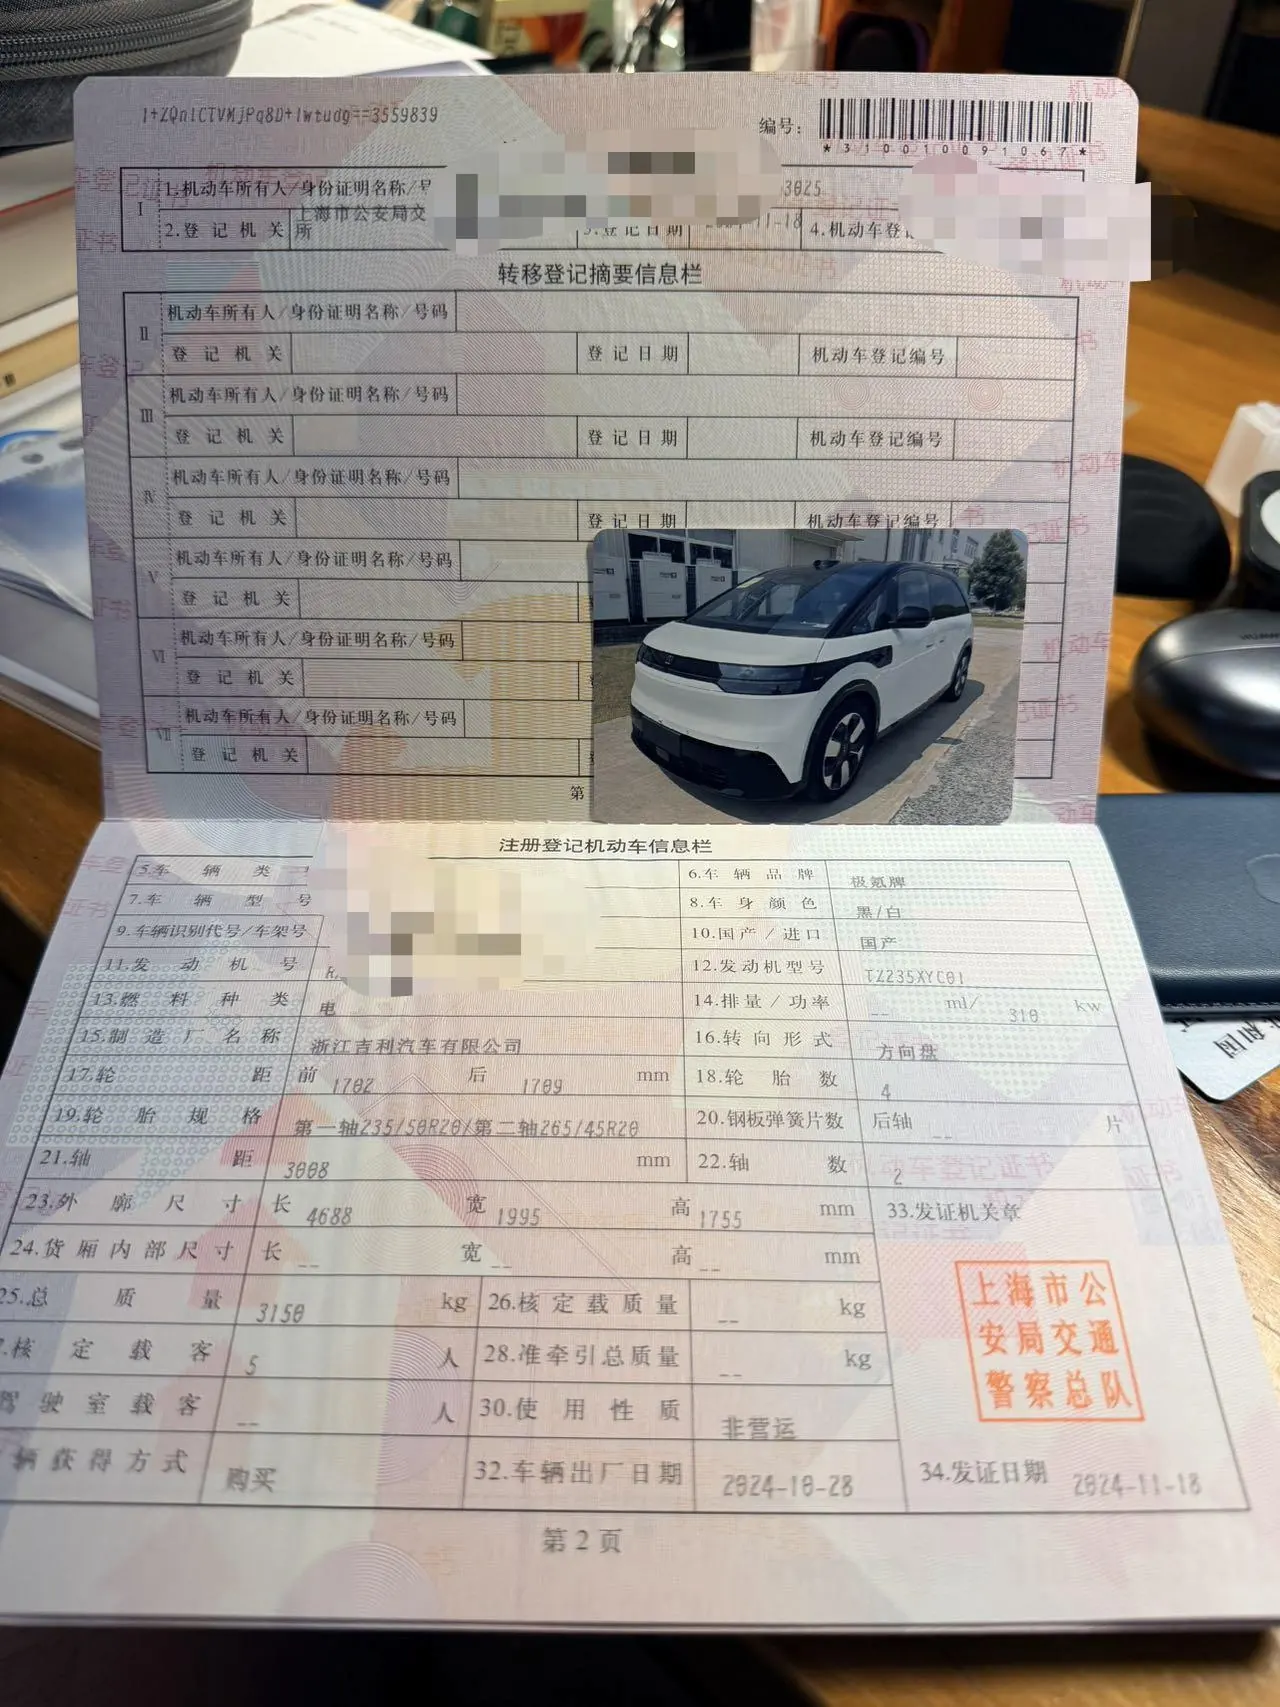 1+ZQnlCTVMjPq8D+1wtudg==3559839
编号：
*310010091067*
I
1.机动车所有人/身份证明名称/号
3025
2.登记机关 上海市公安局交
所
3.登记日期 11-18 4.机动车登
转移登记摘要信息栏
II 机动车所有人/身份证明名称/号码
登记机关 登记日期 机动车登记编号
III 机动车所有人/身份证明名称/号码
登记机关 登记日期 机动车登记编号
IV 机动车所有人/身份证明名称/号码
登记机关 登记日期 机动车登记编号
V 机动车所有人/身份证明名称/号码
登记机关
VI 机动车所有人/身份证明名称/号码
登记机关
VII 机动车所有人/身份证明名称/号码
登记机关
第
注册登记机动车信息栏
5.车辆类 6.车辆品牌 极氪牌
7.车辆型号 8.车身颜色 黑/白
9.车辆识别代号/车架号 10.国产/进口 国产
11.发动机号 12.发动机型号 TZ235XYC01
13.燃料种类 电 14.排量/功率 -- ml/ 310 kw
15.制造厂名称 浙江吉利汽车有限公司 16.转向形式 方向盘
17.轮距 前 1702 后 1709 mm 18.轮胎数 4
19.轮胎规格 第一轴235/50R20/第二轴265/45R20 20.钢板弹簧片数 后轴 -- 片
21.轴距 3008 mm 22.轴数 2
23.外廓尺寸 长 4688 宽 1995 高 1755 mm 33.发证机关章
24.货厢内部尺寸 长 -- 宽 -- 高 -- mm
25.总质量 3150 kg 26.核定载质量 -- kg
.核定载客 5 人 28.准牵引总质量 -- kg
驾驶室载客 -- 人 30.使用性质 非营运
辆获得方式 购买 32.车辆出厂日期 2024-10-28 34.发证日期 2024-11-18
上海市公
安局交通
警察总队
第2页